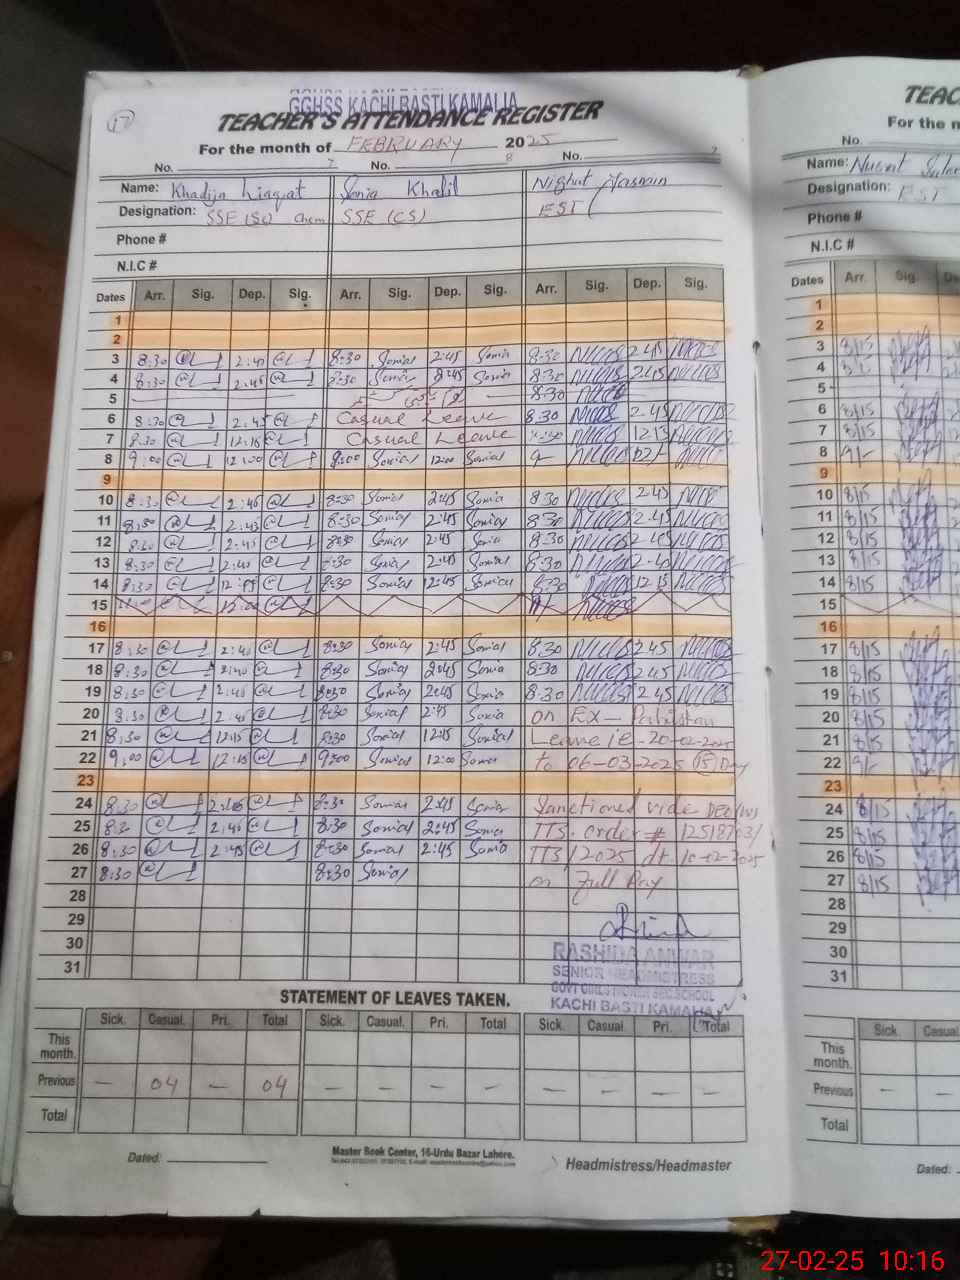 17
GGHSS KACHI BASTI KAMALIA
TEACHER'S ATTENDANCE REGISTER
For the month of FEBRUARY 2025
No. 7 No. 8 No.
Name: Khadija Liaqat Sonia Khalil Nighat Hasnain
Designation: SSE (Sc) Chem SSE (CS) EST
Phone #
N.I.C #
Dates Arr. Sig. Dep. Sig. Arr. Sig. Dep. Sig. Arr. Sig. Dep. Sig.
1
2
3 8:30 2:45 8:30 Sonia 2:45 Sonia 8:30 2.45
4 8:30 2:45 8:30 Sonia 2:45 Sonia 8:30 2.45
5 8:30
6 8:30 2:45 Casual Leave 8.30 2.45
7 8:30 12:15 Casual Leave 8:30 12.15
8 9:00 12:00 9:00 Sonia 12:00 Sonia 9-
9
10 8:30 2:45 8:30 Sonia 2:45 Sonia 8.30 2.45
11 8:30 2:45 8:30 Sonia 2:45 Sonia 8:30 2.45
12 8:30 2:45 8:30 Sonia 2:45 Sonia 8:30 2.45
13 8:30 2:45 8:30 Sonia 2:45 Sonia 8:30 2.45
14 8:30 12:15 8:30 Sonia 12:45 Sonia 8:30 12.15
15 12:00
16
17 8:30 2:45 8:30 Sonia 2:45 Sonia 8.30 2.45
18 8:30 2:40 8:30 Sonia 2:45 Sonia 8:30 2.45
19 8:30 2:45 8:30 Sonia 2:45 Sonia 8.30 2.45
20 8:30 2:45 8:30 Sonia 2:45 Sonia on Ex-Pakistan
21 8:30 12:15 8:30 Sonia 12:15 Sonia Leave i.e. 20-02-2025
22 9:00 12:15 9:00 Sonia 12:00 Sonia to 06-03-2025 (15) Day
23
24 8:30 2:45 8:30 Sonia 2:45 Sonia Sanctioned vide DEO(W)
25 8:30 2:45 8:30 Sonia 2:45 Sonia TTS. order # 12518703/
26 8:30 2:45 8:30 Sonia 2:45 Sonia TTS/2025 dt. 10-02-2025
27 8:30 8:30 Sonia on Full Pay
28
29
30
31
RASHIDA ANWAR
SENIOR HEADMISTRESS
GOVT GIRLS HIGHER SEC SCHOOL
KACHI BASTI KAMALIA
STATEMENT OF LEAVES TAKEN.
Sick. Casual. Pri. Total Sick. Casual. Pri. Total Sick. Casual. Pri. Total
This month.
Previous — 04 — 04 — — — — — — — —
Total
Dated:
Master Book Center, 16-Urdu Bazar Lahore.
Headmistress/Headmaster
TEAC
For the m
No.
Name: Nusrat
Designation: EST
Phone #
N.I.C #
Dates Arr. Sig. De
1
2
3 8/15
4 8/15
5
6 8/15
7 8/15
8 9/-
9
10 8/15
11 8/15
12 8/15
13 8/15
14 8/15
15
16
17 8/15
18 8/15
19 8/15
20 8/15
21 8/15
22 9/-
23
24 8/15
25 8/15
26 8/15
27 8/15
28
29
30
31
Sick. Casual
This month.
Previous — —
Total
Dated:
27-02-25 10:16